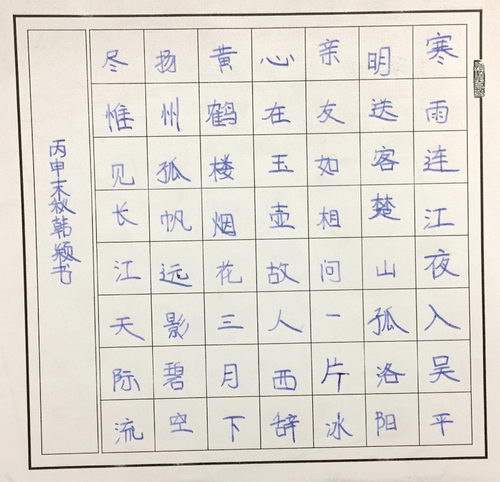 寒雨连江夜入吴平
明送客楚山孤洛阳
亲友如相问一片冰
心在玉壶故人西辞
黄鹤楼烟花三月下
扬州孤帆远影碧空
尽惟见长江天际流
丙申末秋韩颖书